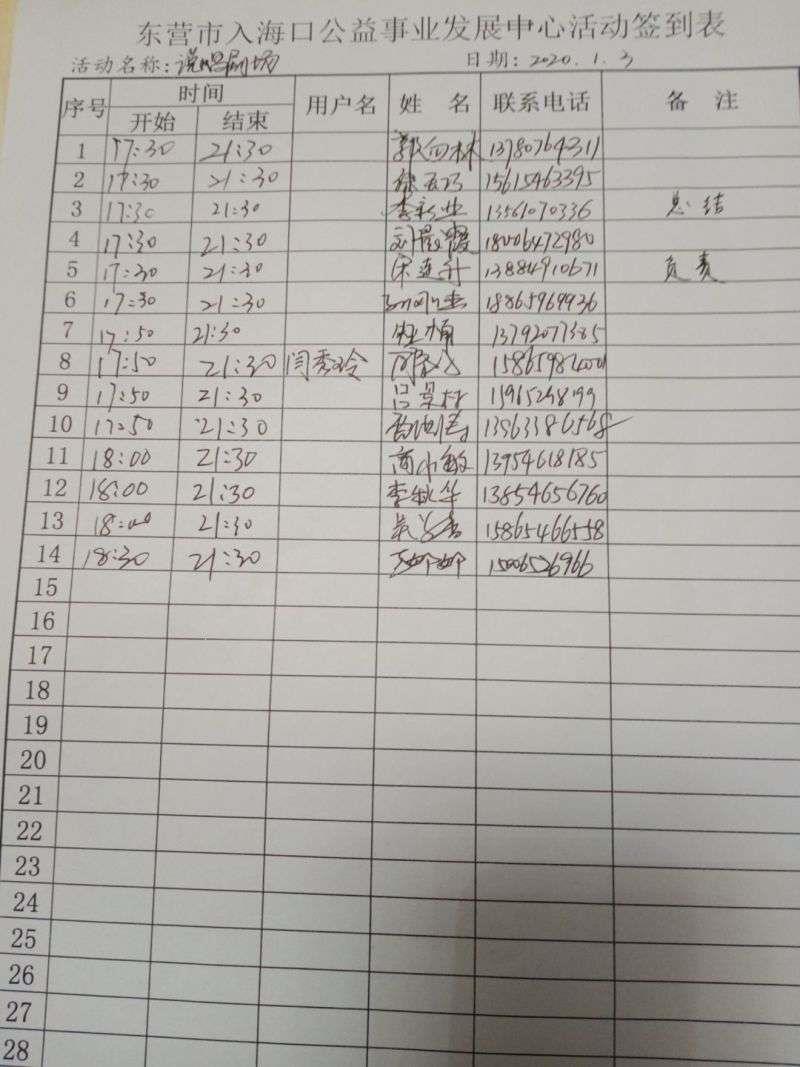 东营市入海口公益事业发展中心活动签到表
活动名称：说唱剧场 日期：2020.1.3
序号 时间 用户名 姓名 联系电话 备注
开始 结束
1 17:30 21:30 郭向林 13780764311
2 17:30 21:30 15615463395
3 17:30 21:30 李新业 13561070336 总结
4 17:30 21:30 刘晨霞 18006472980
5 17:30 21:30 宋连升 13884910671 负责
6 17:30 21:30 18865969936
7 17:50 21:30 13792077385
8 17:50 21:30 闫秀玲
9 17:50 21:30 吕景村 15965248199
10 17:50 21:30 13963386568
11 18:00 21:30 商小敏 13954618185
12 18:00 21:30 李秋华 13854656760
13 18:00 21:30 15865466558
14 18:30 21:30 15006526966
15
16
17
18
19
20
21
22
23
24
25
26
27
28